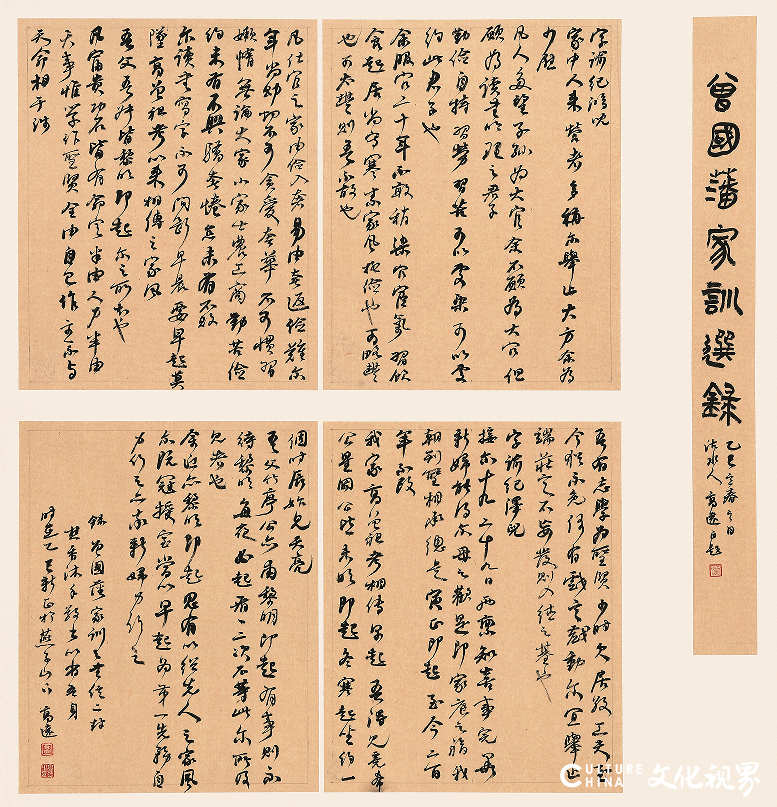 曾國藩家訓選錄
乙巳立春之日
人高遠自題
字諭紀鴻兒
家中人來營者多稱爾舉止大方余為
少慰
凡人多望子孫為大官余不願為大官但
願為讀書明理之君子
勤儉自持習勞習苦可以處樂可以處
約此君子也
余服官二十年不敢稍染官宦氣習飲
食起居尚守寒素家風極儉也可略豐
也可太豐則吾不敢也
凡仕宦之家由儉入奢易由奢返儉難爾
年尚幼切不可貪愛奢華不可慣習
懶惰無論大家小家士農工商勤苦儉
約未有不興驕奢倦怠未有不敗
爾讀書寫字不可間斷早晨要早起莫
墜高曾祖考以來相傳之家風
吾父吾叔皆黎明即起爾之所知也
凡富貴功名皆有命定半由人力半由
天事惟學作聖賢全由自己作主不與
天命相干涉
吾有志學為聖賢少時欠居敬工夫至
今猶不免偶有戲言戲動爾宜舉止
端莊言不妄發則入德之基也
字諭紀澤兒
接爾十九二十九日兩稟知喜事完畢
新婦能得爾母之歡是即家庭之福我
朝列聖相承總是寅正即起至今二百
年不改
我家高曾祖考相傳早起吾得見竟希
公星岡公皆未明即起冬寒起坐約一
個時辰始見天亮
吾父竹亭公亦甫黎明即起有事則不
待黎明每夜必起看一二次不等此爾所及
見者也
余近亦黎明即起思有以紹先人之家風
爾既冠授室當以早起為第一先務自
力行之亦率新婦力行之
錄曾國藩家訓之書信二封
焚香沐手敬書以省吾身
時在乙巳新正於燕子山下高遠
CULTURE CHINA 文化視界